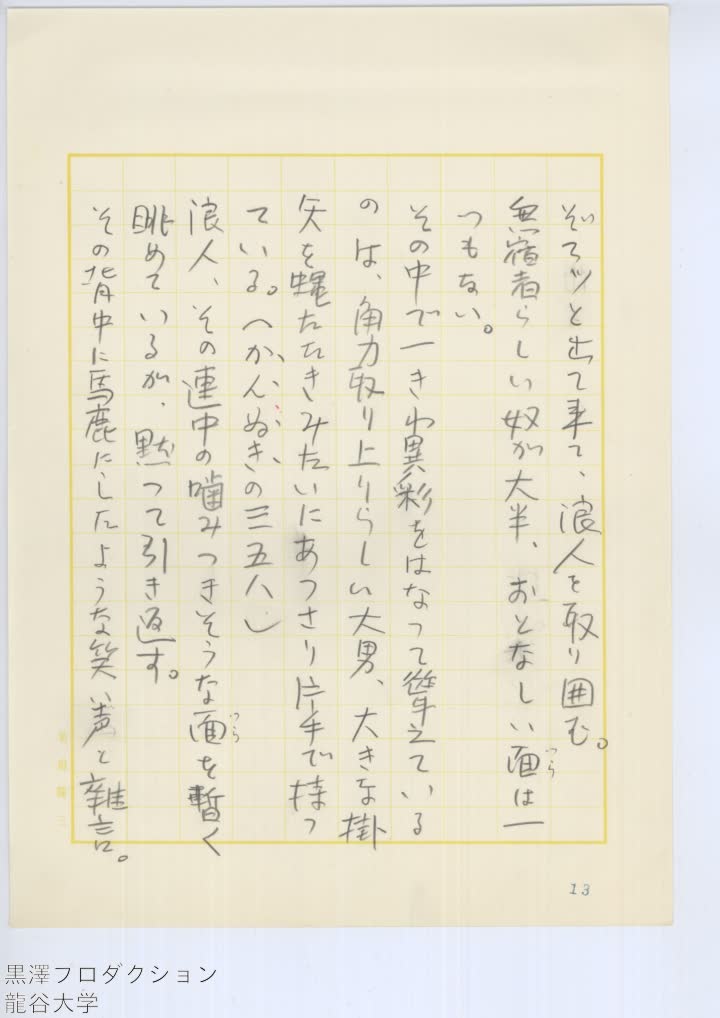 ぞろッと出て来て、浪人を取り囲む。
無宿者らしい奴が大半、おとなしい面は一
つら
つもない。
その中で一きわ異彩をはなって聳えている
のは、角力取り上りらしい大男、大きな掛
矢を蠅たたきみたいにあっさり片手で持っ
ている。(かんぬきの三五八)
浪人、その連中の噛みつきそうな面を暫く
つら
眺めているが、黙って引き返す。
その背中に馬鹿にしたような笑い声と雑言。
13
黒澤プロダクション
龍谷大学